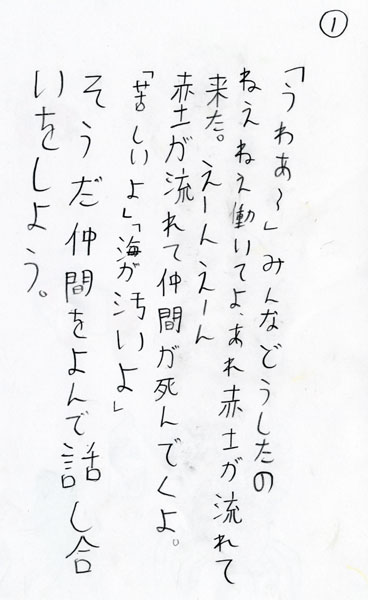 ①
「うわあ～」みんなどうしたの
ねえねえ働いてよ、あれ赤土が流れて
来た。えーんえーん
赤土が流れて仲間が死んでくよ。
「苦しいよ」「海が汚いよ」
そうだ仲間をよんで話し合
いをしよう。